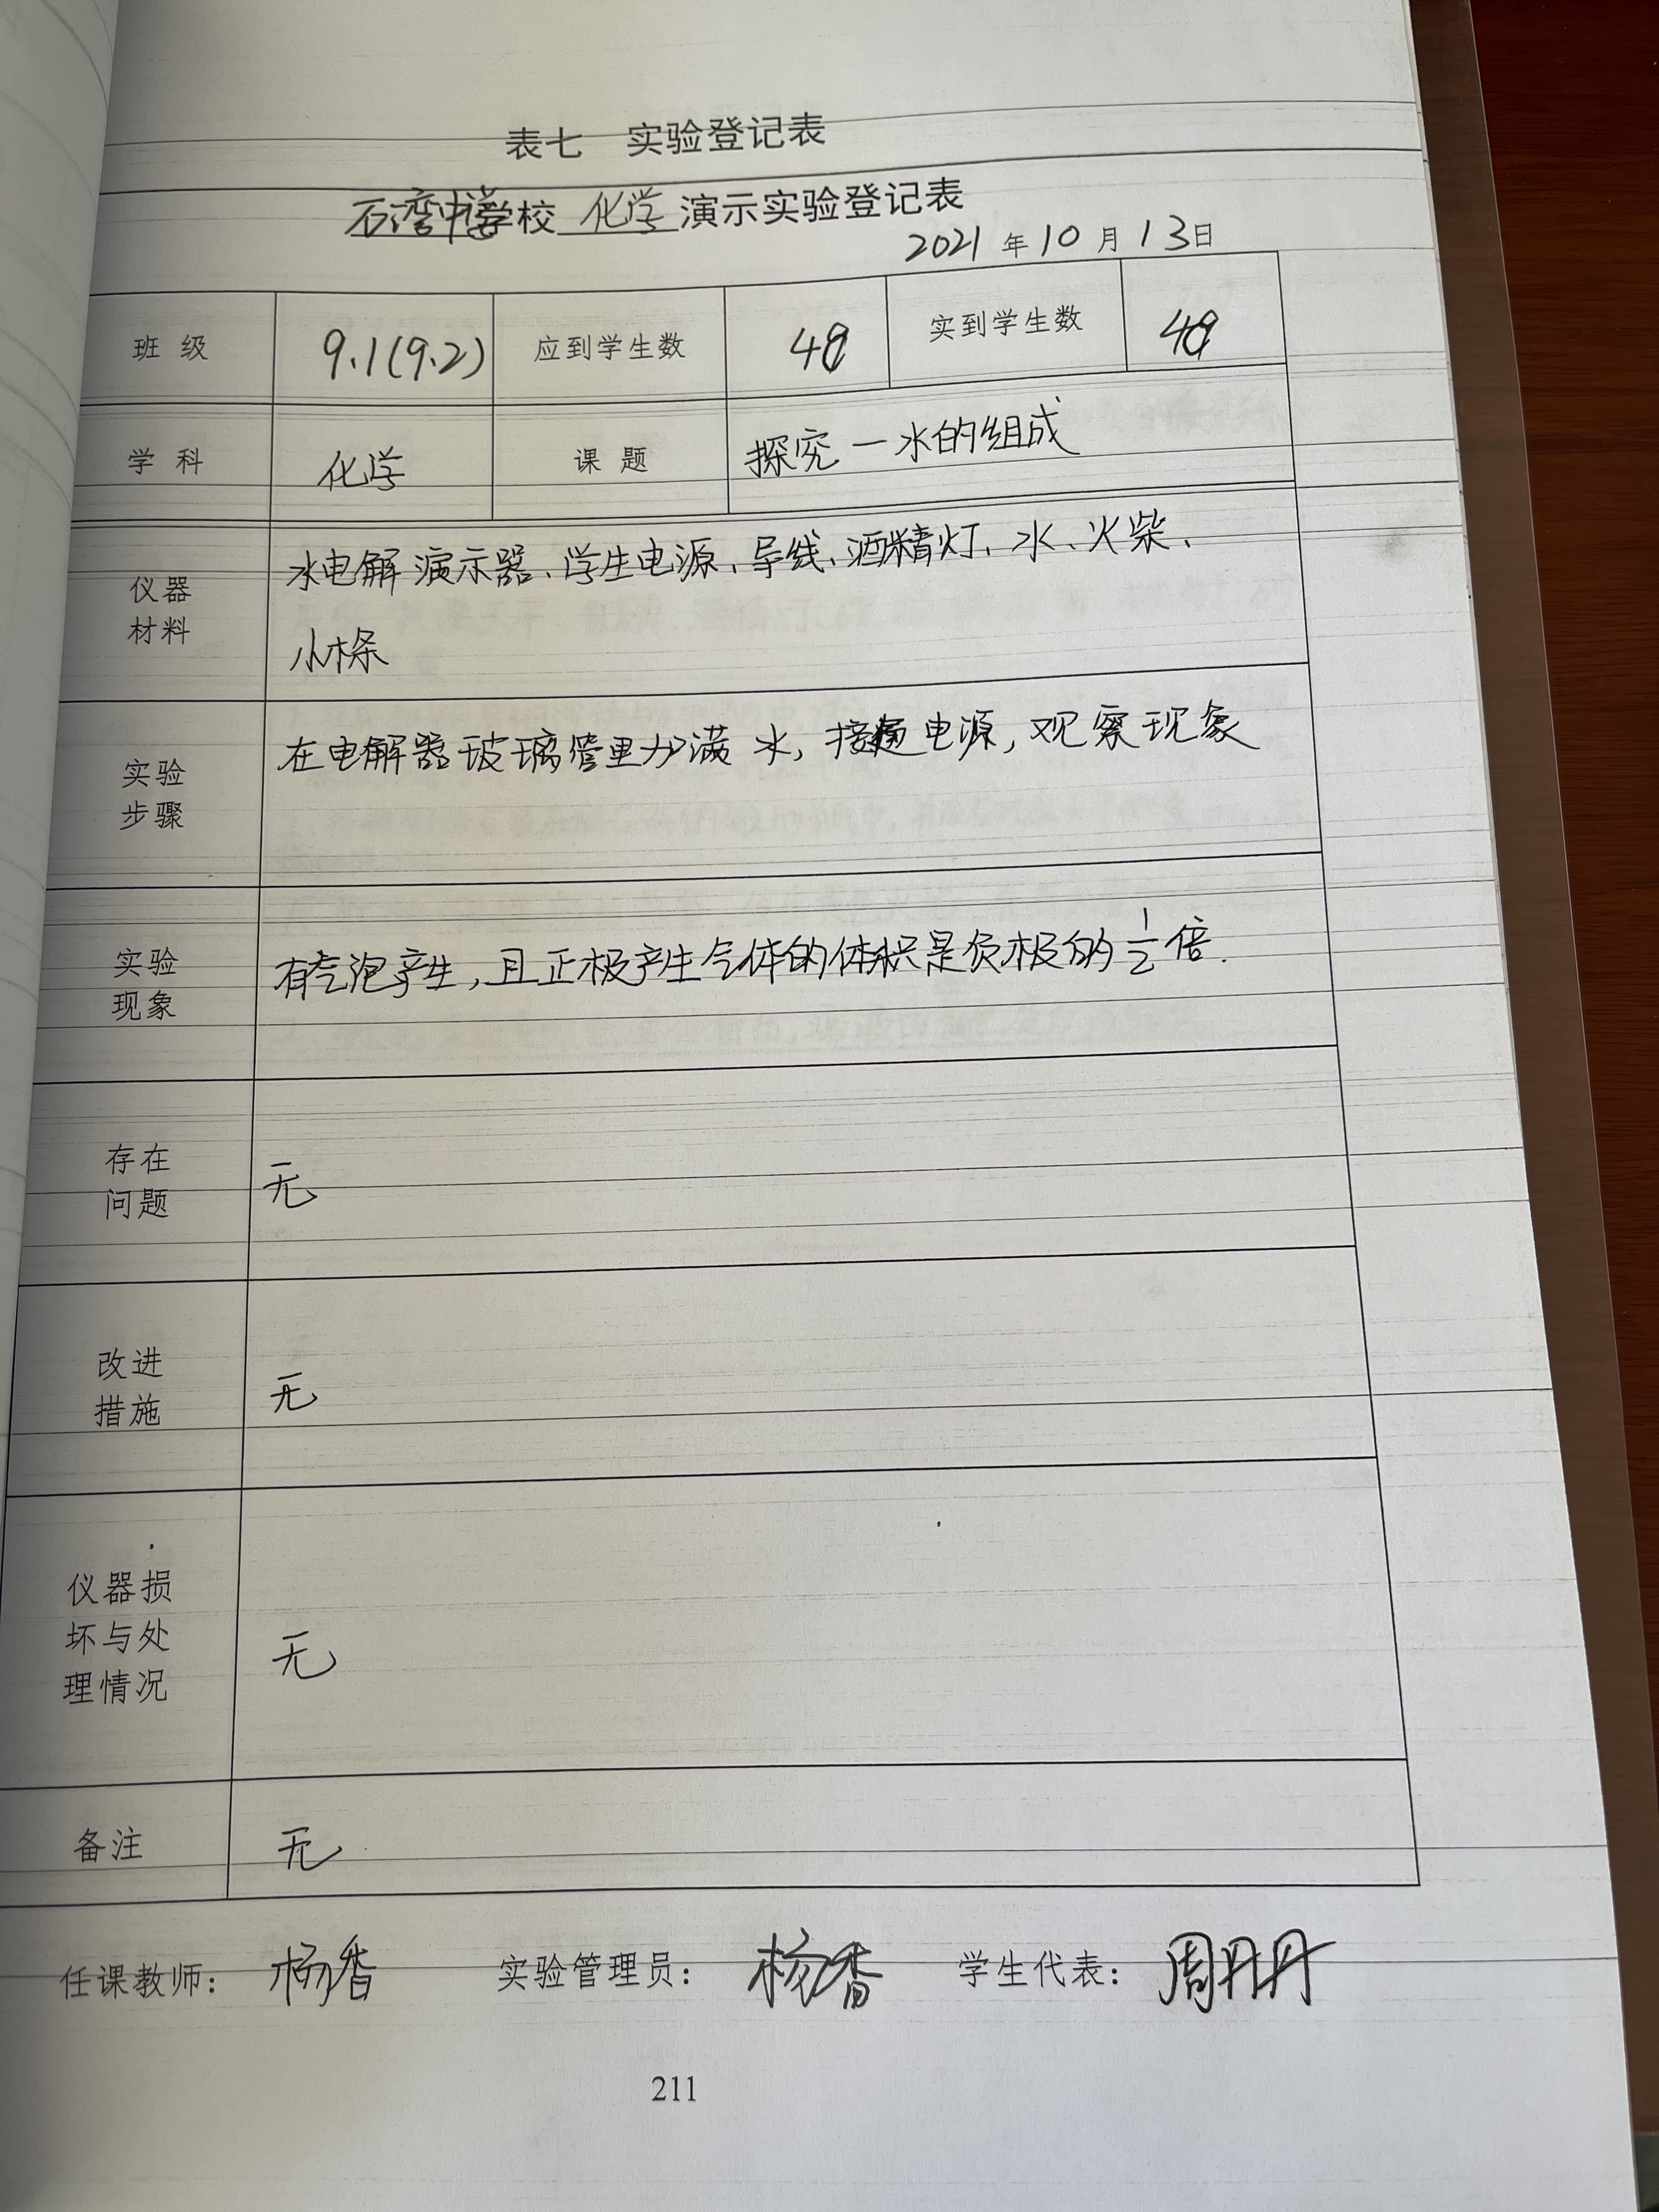 表七 实验登记表
石湾中学学校 化学 演示实验登记表
2021 年 10 月 13 日
班 级 9.1(9.2) 应到学生数 48 实到学生数 48
学 科 化学 课 题 探究一水的组成
仪器
材料
水电解演示器、学生电源、导线、酒精灯、水、火柴、
小木条
实验
步骤
在电解器玻璃管里加满水, 接通电源, 观察现象
实验
现象
有气泡产生, 且正极产生气体的体积是负极的 1/2 倍.
存在
问题
无
改进
措施
无
仪器损
坏与处
理情况
无
备注 无
任课教师: 杨香 实验管理员: 杨香 学生代表: 周丹丹
211